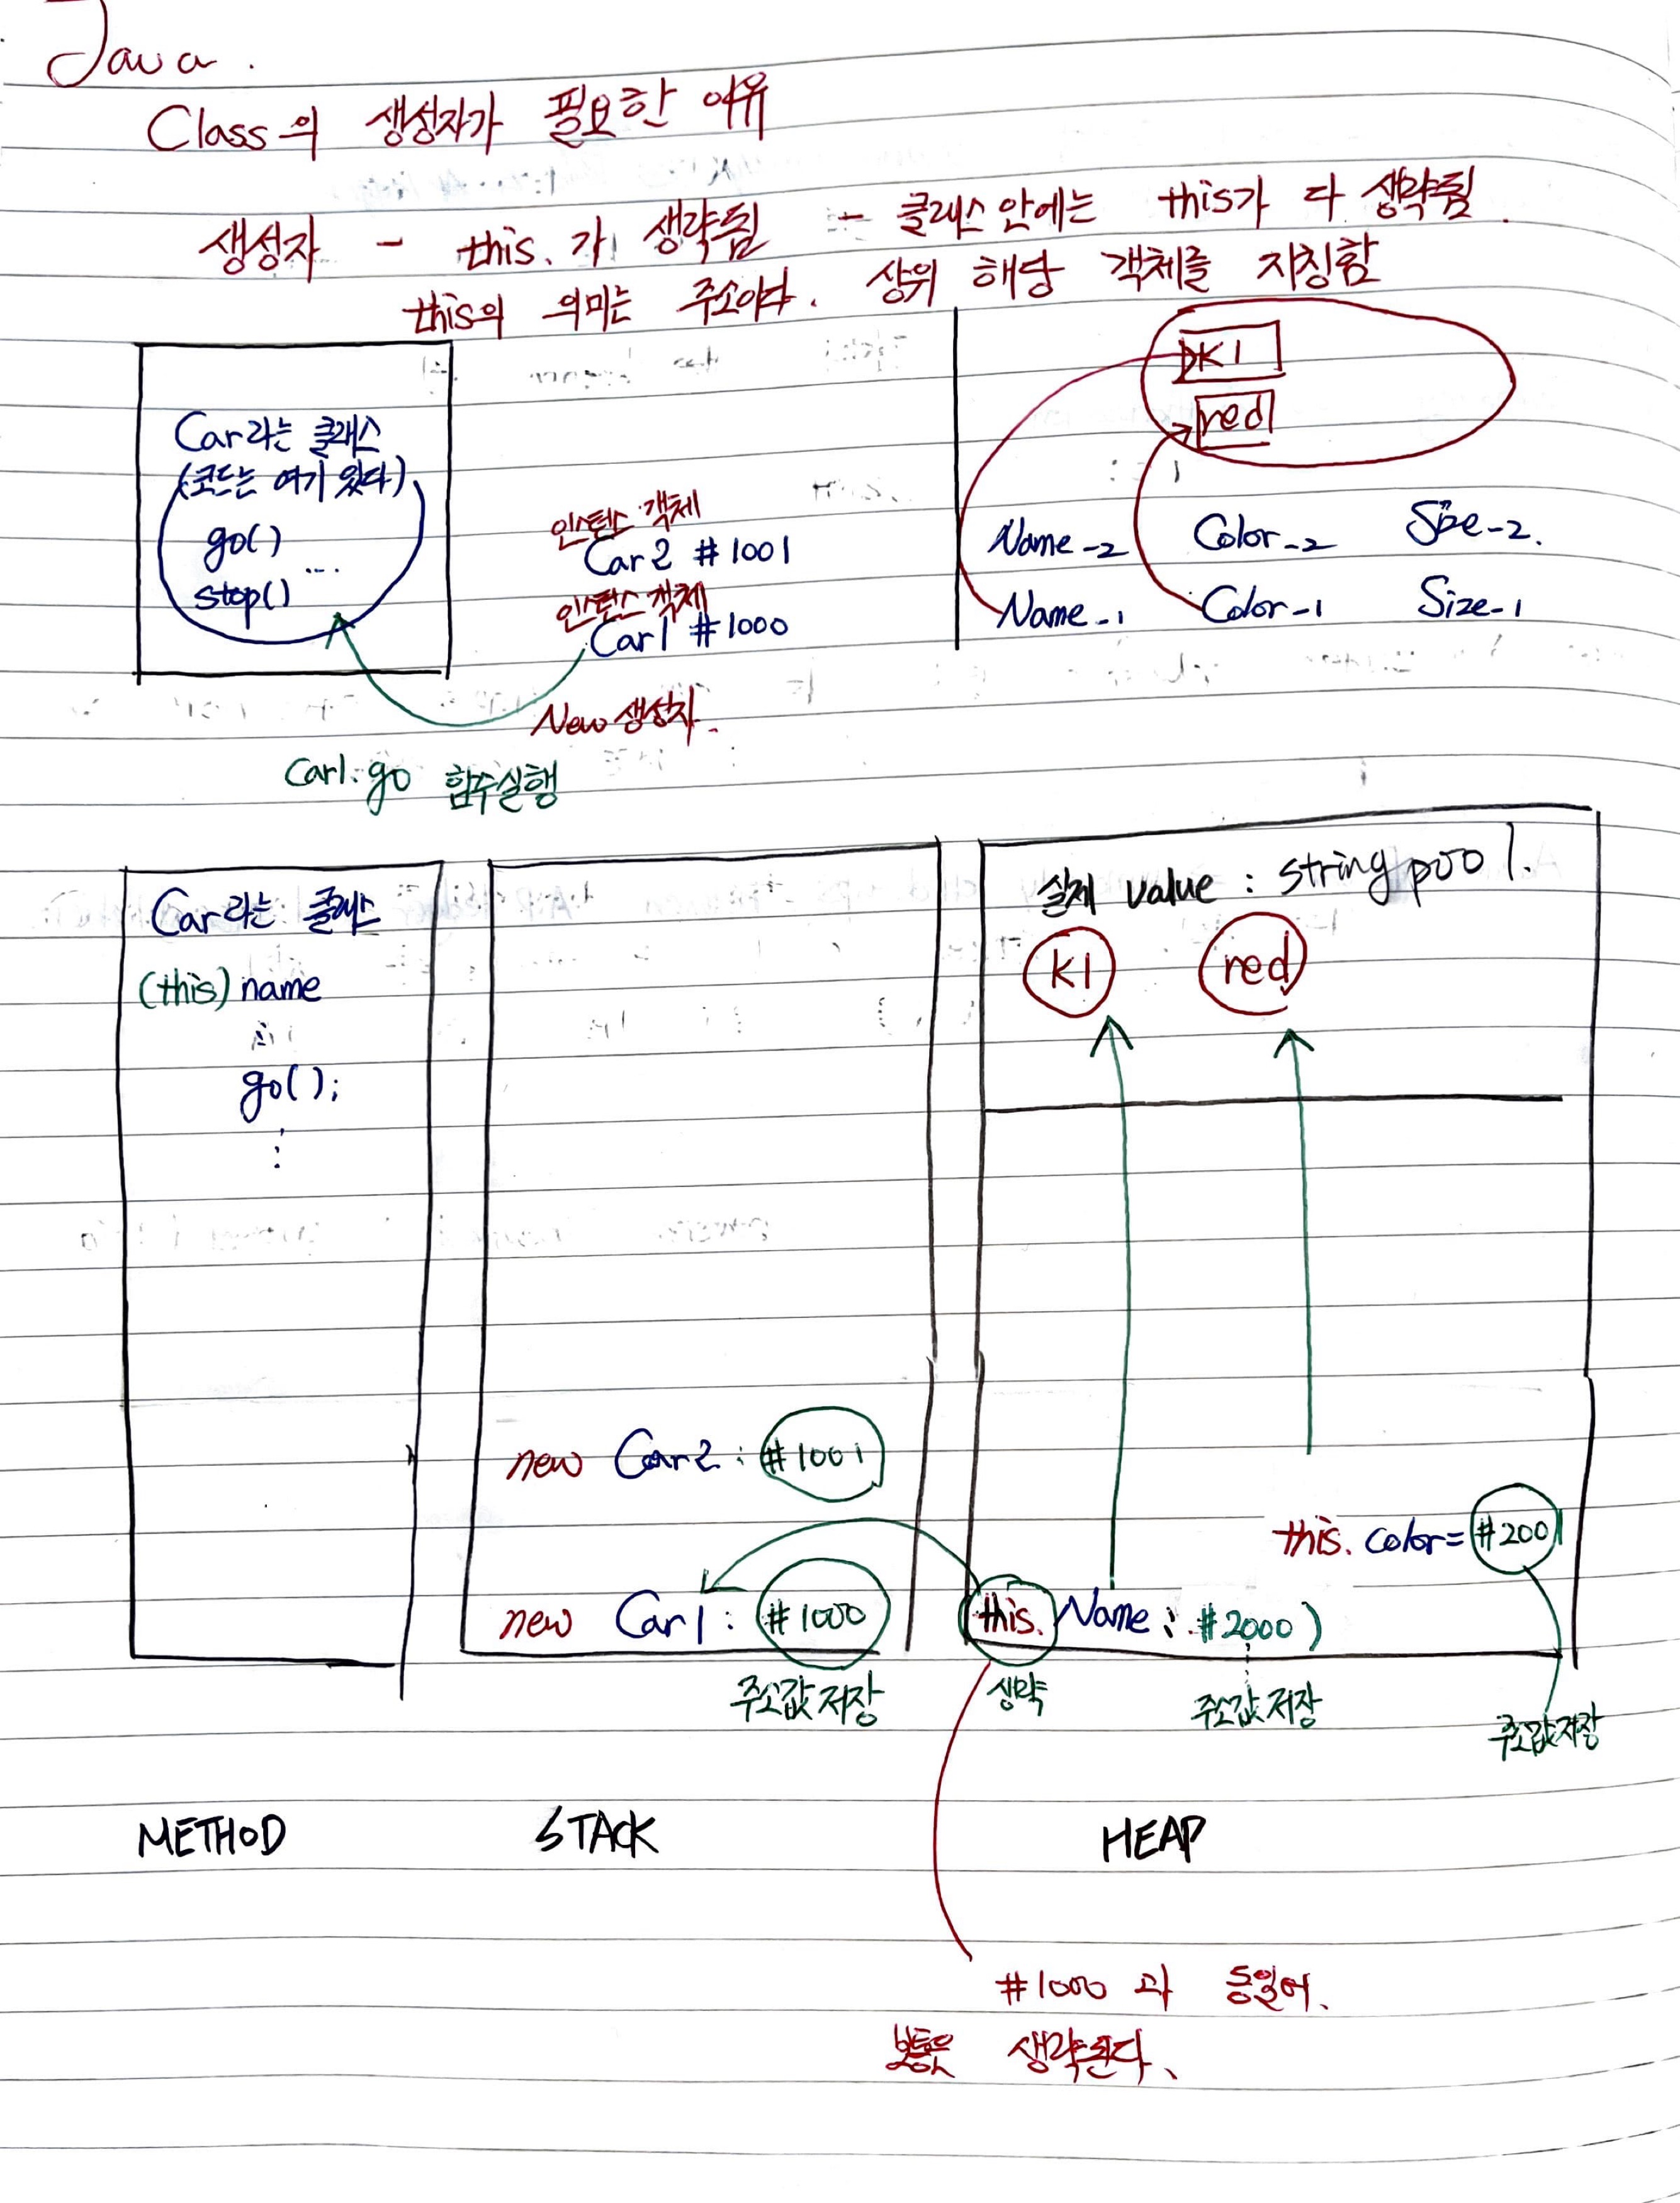 Java.
Class의 생성자가 필요한 이유
생성자 - this.가 생략됨 - 클래스 안에는 this가 다 생략됨.
this의 의미는 주소이다. 상위 해당 객체를 지칭함
K1
red
Car라는 클래스
(코드는 여기 있다)
go()
stop() ...
인스턴스 객체
Car2 #1001
인스턴스 객체
Car1 #1000
New 생성자.
Name_2 Color_2 Size_2.
Name_1 Color_1 Size_1
Car1.go 함수실행
Car라는 클래스
(this) name
go();
실제 value : string pool.
K1 red
new Car2 : #1001
this. color= #2001
new Car1 : #1000
this. Name : #2000)
주소값 저장
생략
주소값 저장
주소값저장
METHOD STACK HEAP
#1000 과 동일어.
보통은 생략된다.